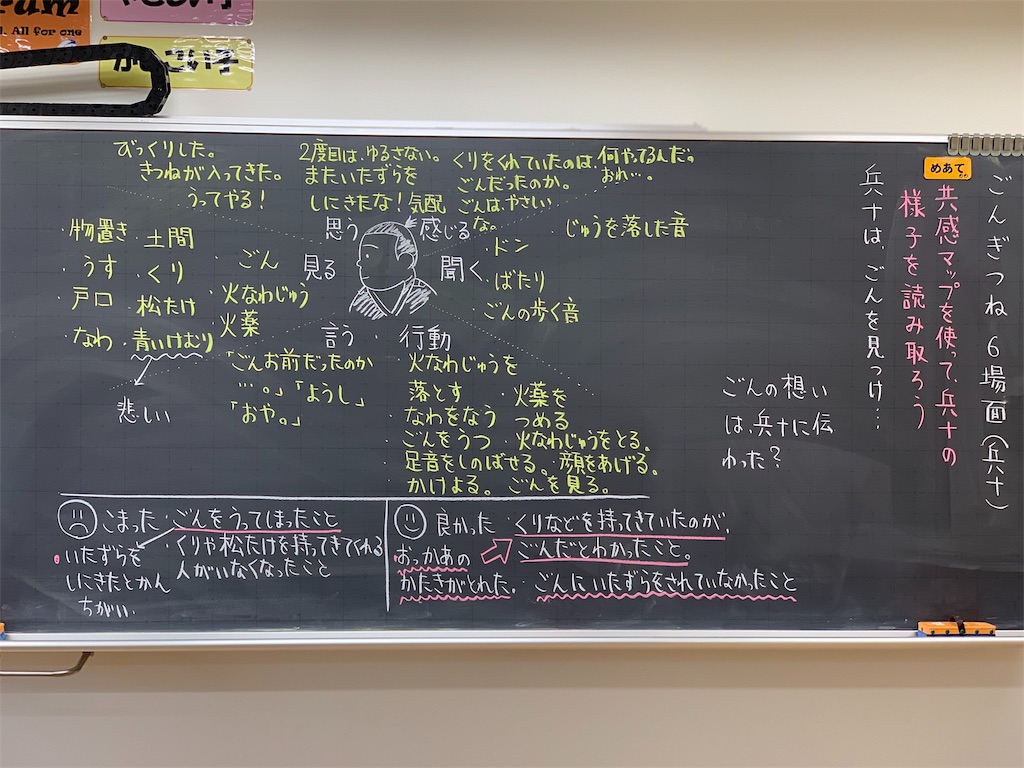 ごんぎつね 6場面(兵十)
めあて
共感マップを使って、兵十の
様子を読み取ろう
兵十は、ごんを見つけ…
ごんの想い
は、兵十に伝
わった?
びっくりした。
きつねが入ってきた。
うってやる!
2度目は、ゆるさない。
またいたずらを
しにきたな!気配
くりをくれていたのは
ごんだったのか。
ごんは、やさしい
な。
何やってるんだ。
おれ…。
思う
感じる
見る
聞く
言う・行動
物置き・土間
・うす・くり
・戸口・松たけ
なわ・青いけむり
悲しい
・ごん
・火なわじゅう
火薬
・じゅうを落した音
・ドン
・ばたり
・ごんの歩く音
「ごんお前だったのか
…。」「ようし」
「おや。」
火なわじゅうを
落とす・火薬を
なわをなう つめる
ごんをうつ 火なわじゅうをとる。
足音をしのばせる。顔をあげる。
かけよる。ごんを見る。
こまった・ごんをうってしまったこと
・くりや松たけを持ってきてくれる
人がいなくなったこと
いたずらを
しにきたとかん
ちがい。
良かった・くりなどを持ってきていたのが、
ごんだとわかったこと。
おっかあの
かたきがとれた。・ごんにいたずらをされていなかったこと
All for one